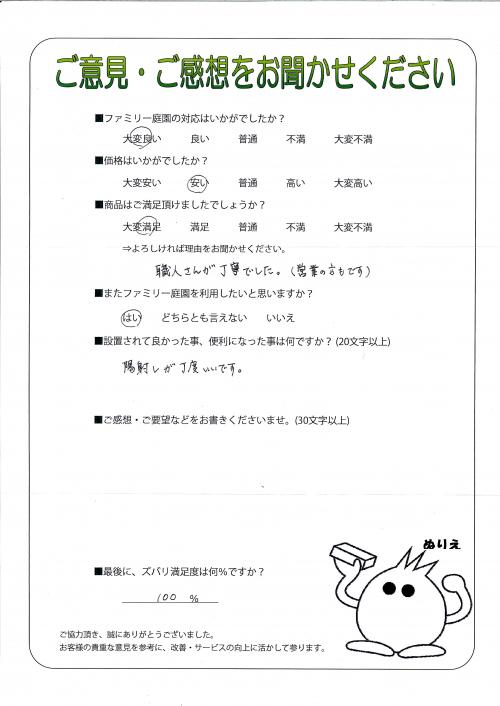 ご意見・ご感想をお聞かせください
■ファミリー庭園の対応はいかがでしたか？
大変良い 良い 普通 不満 大変不満
■価格はいかがでしたか？
大変安い 安い 普通 高い 大変高い
■商品はご満足頂けましたでしょうか？
大変満足 満足 普通 不満 大変不満
⇒よろしければ理由をお聞かせください。
職人さんが丁寧でした。(営業の方もです)
■またファミリー庭園を利用したいと思いますか？
はい どちらとも言えない いいえ
■設置されて良かった事、便利になった事は何ですか？(20文字以上)
陽射しが丁度いいです。
■ご感想・ご要望などをお書きくださいませ。(30文字以上)
ぬりえ
■最後に、ズバリ満足度は何%ですか？
100 %
ご協力頂き、誠にありがとうございました。
お客様の貴重な意見を参考に、改善・サービスの向上に活かして参ります。